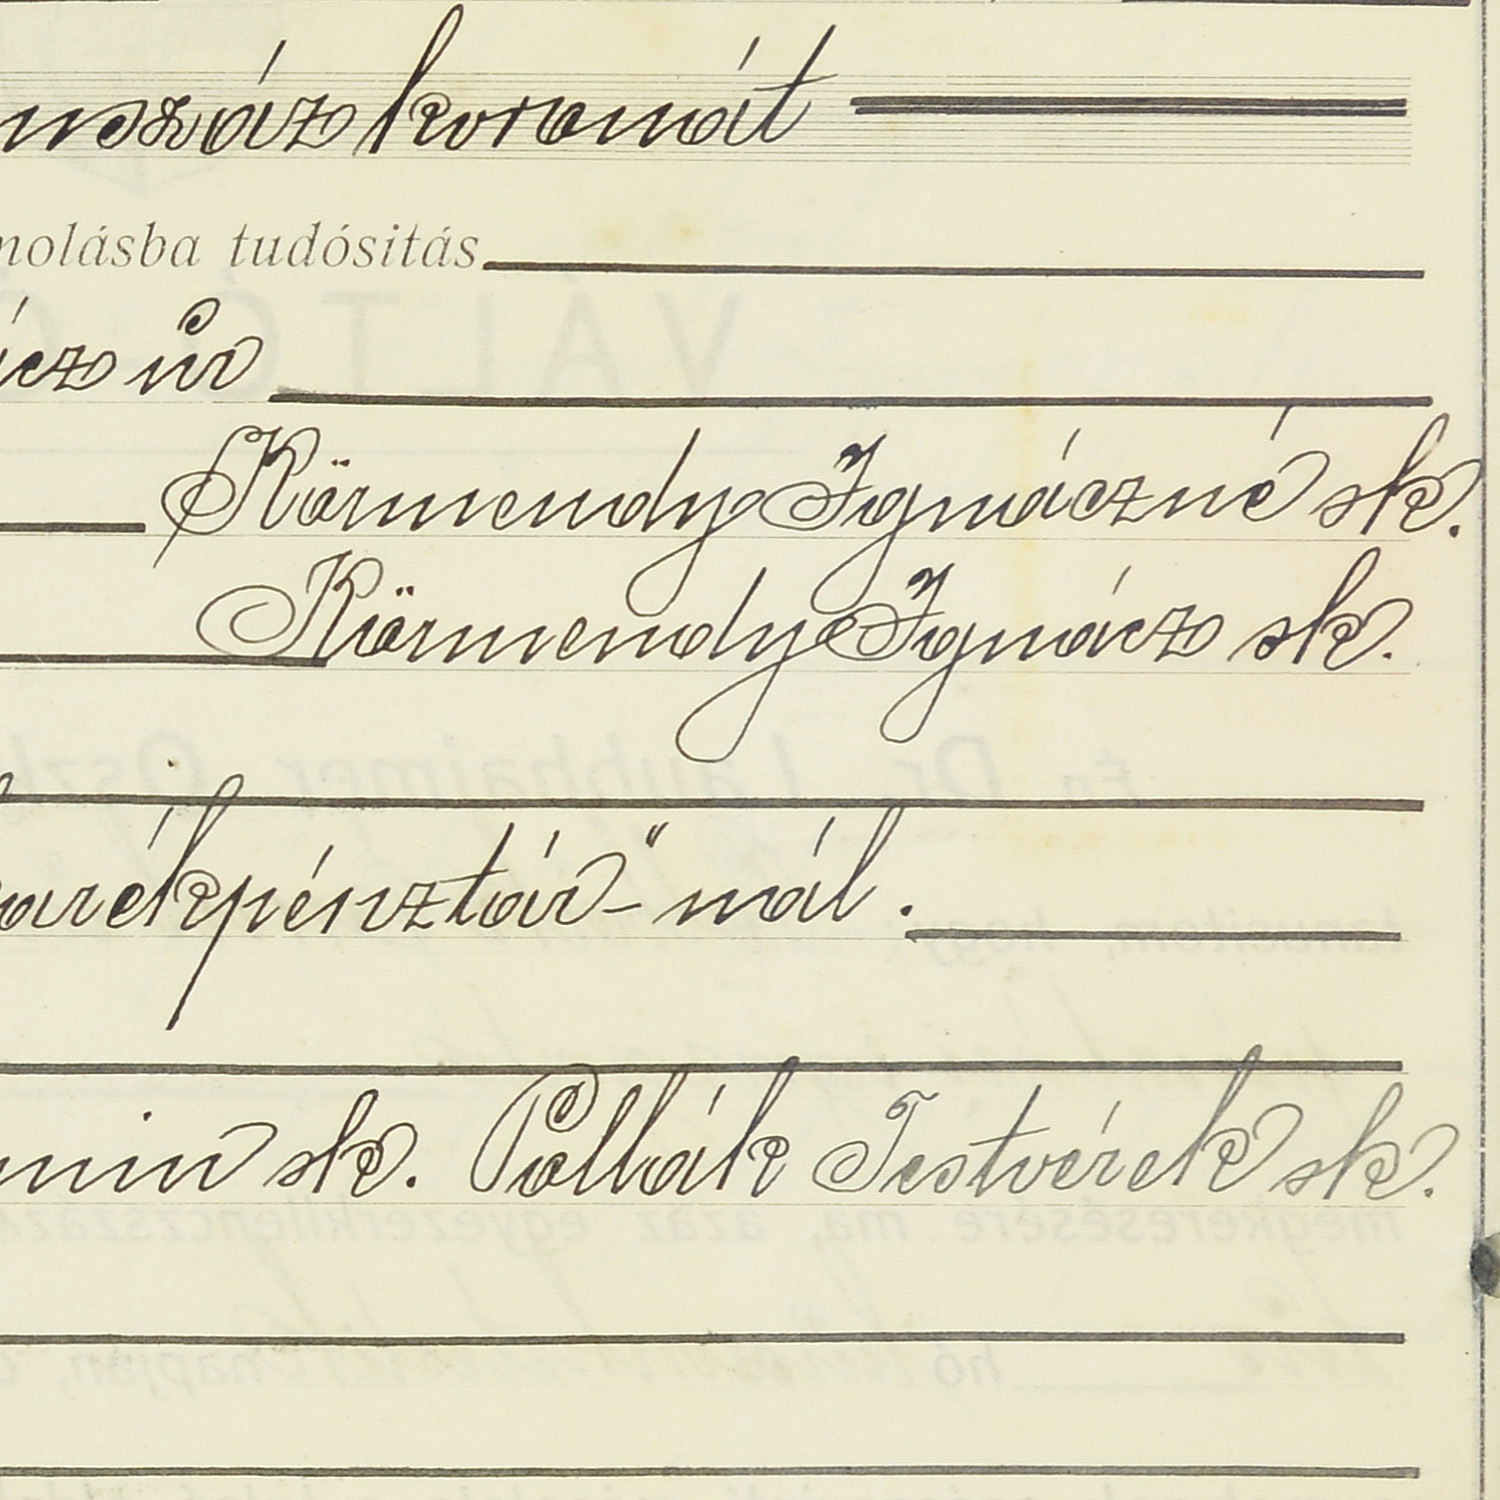 nszáz koronát
molásba tudósitás
ácz úr
Körmendy Ignáczné sk.
Körmendy Ignácz sk.
arékpénztár-" nál.
min sk. Pollák Testvérek sk.